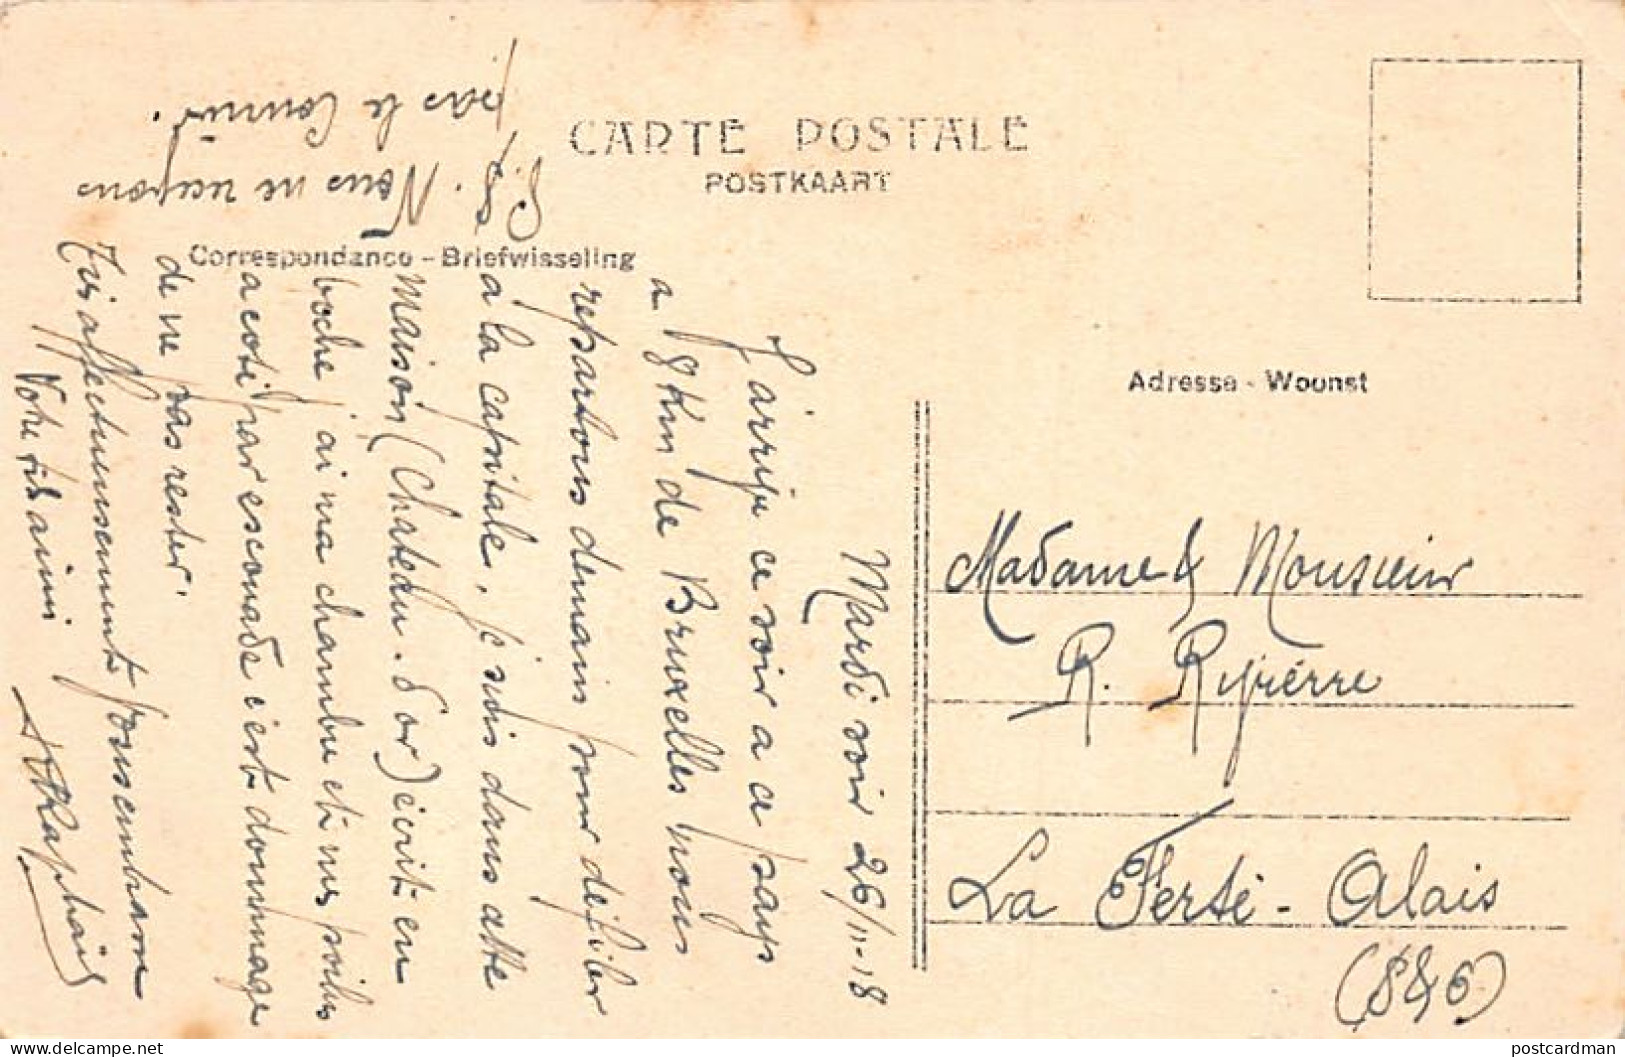 CARTE POSTALE
POSTKAART
Correspondance - Briefwisseling
Adresse - Woonst
Mardi soir 26/11-18
J'arrive ce soir a ce pays
a 18 Km de Bruxelles nous
repartons demain pour défiler
a la capitale, je suis dans cette
Maison (Chateau d'or) écrit en
boche j'ai ma chambre et mes poilus
a coté par escouade c'est dommage
de ne pas rester.
Très affectueusement
Votre fils aimé
P.S. Nous ne recevons
pas le Courrier.
Madame & Monsieur
R. Rypierre
La Ferté-Alais
(S&O)
postcardman